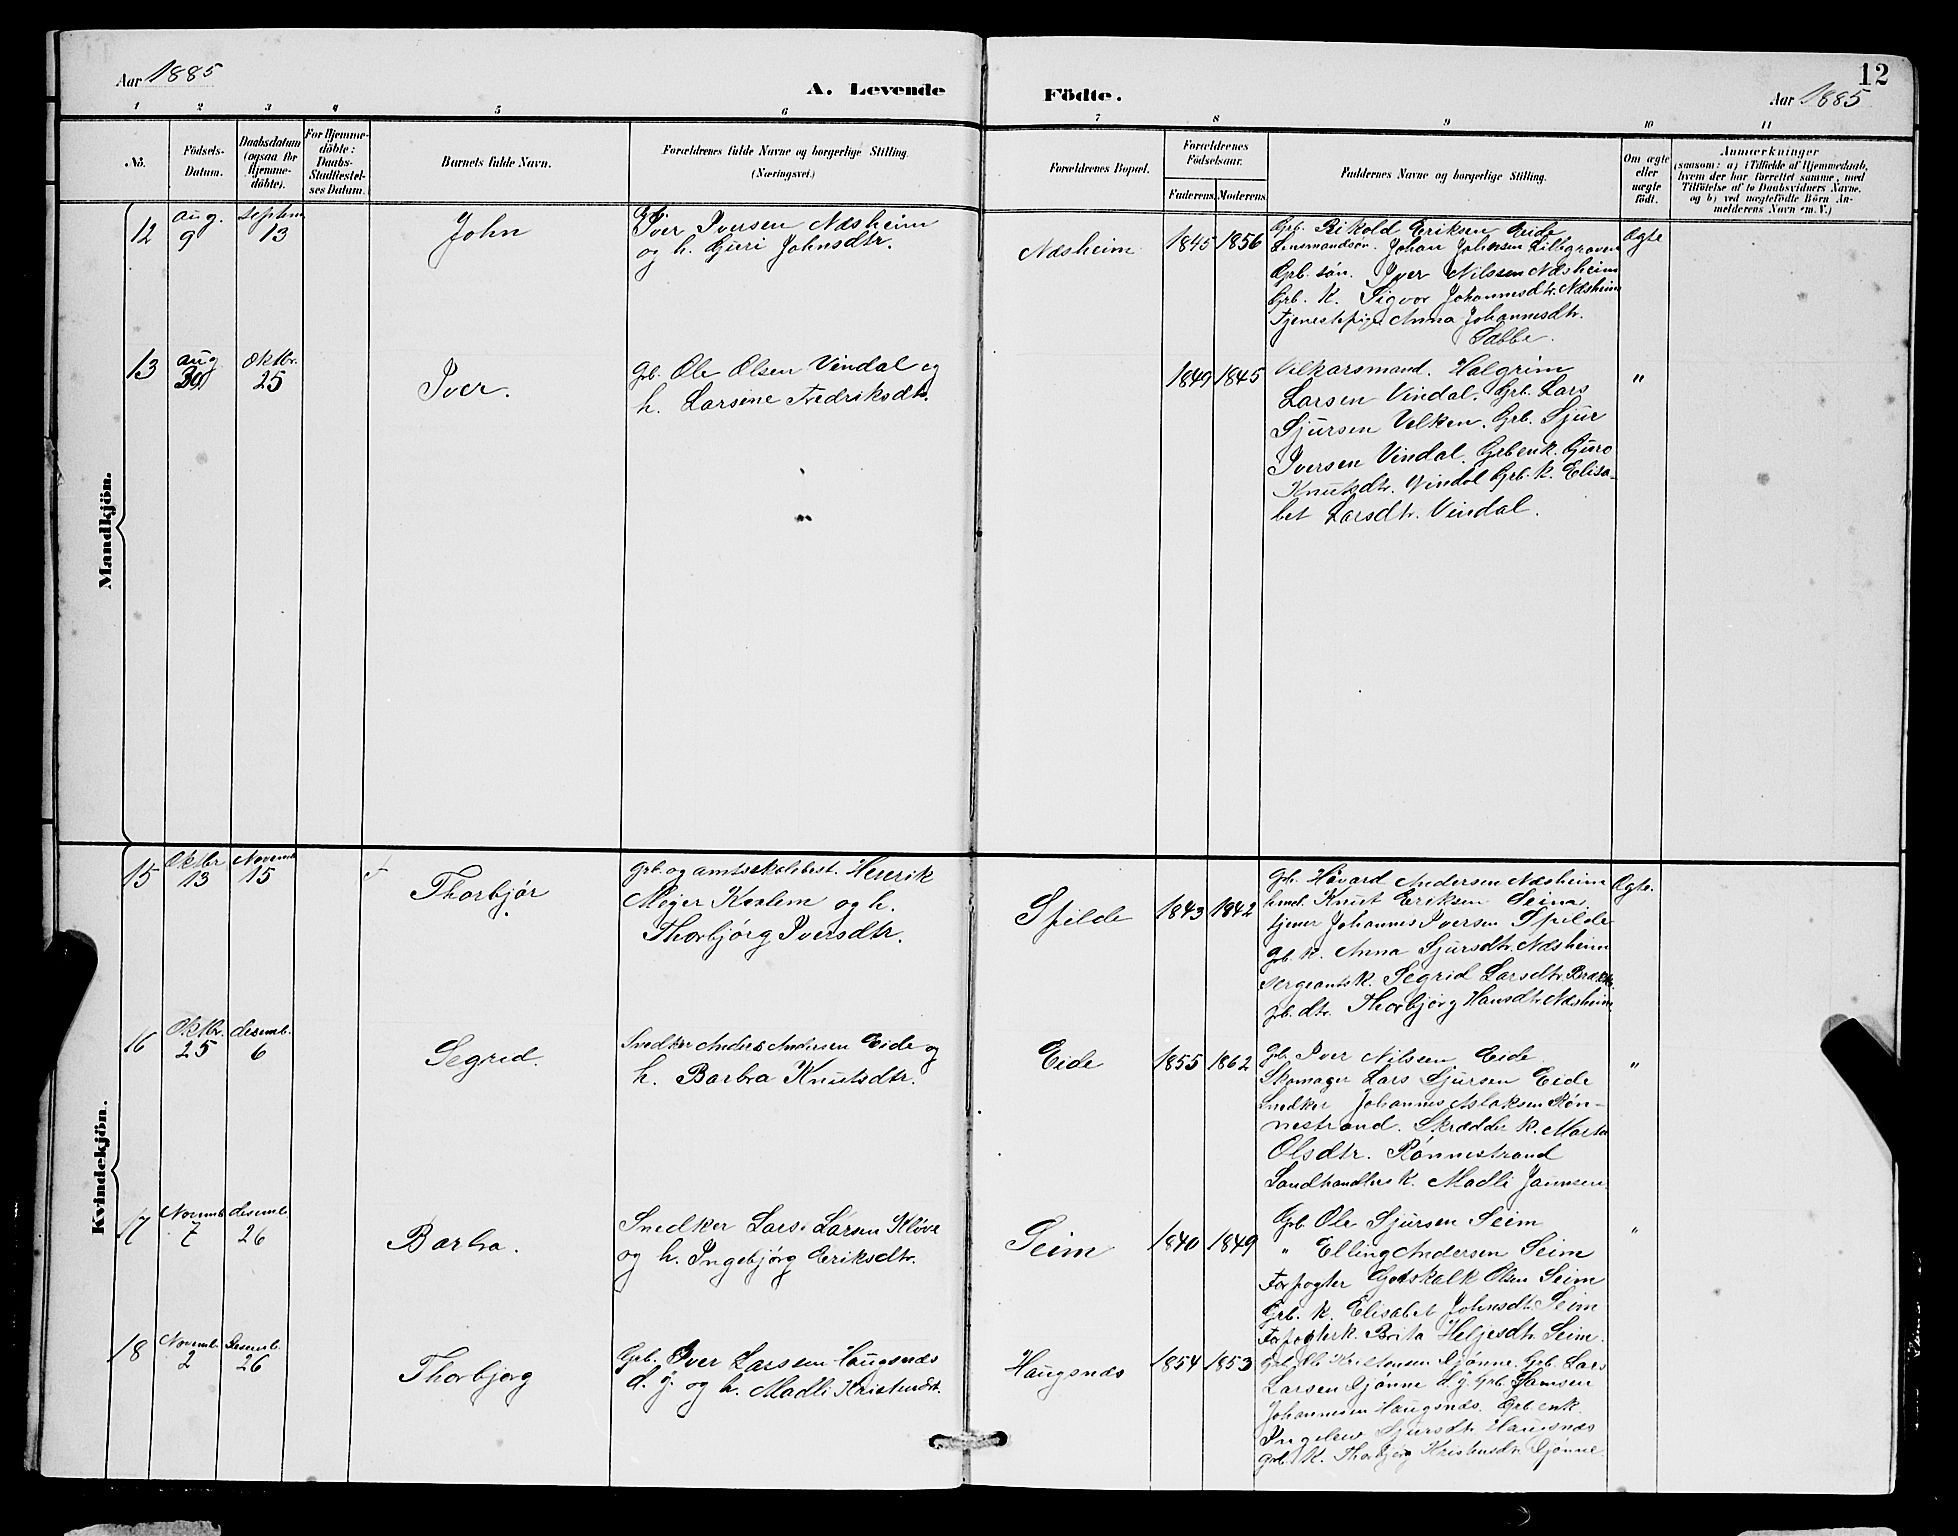 Aar 1885
A. Levende
Födte.
Aar 1885
12
1 2 3 4 5 6 7 8 9 10 11
No.
Födsels-
Datum.
Daabsdatum
(ogsaa for
Hjemme-
döbte).
For Hjemme-
döbte:
Daabs-
Stadfæstel-
ses Datum.
Barnets fulde Navn.
Forældrenes fulde Navne og borgerlige Stilling.
(Næringsvei.)
Forældrenes Bopæl.
Forældrenes
Födselsaar.
Faderens. Moderens.
Faddernes Navne og borgerlige Stilling.
Om ægte
eller
uægte
født.
Anmærkninger
(saasom: a) i Tilfælde af Hjemmedaab,
hvem der har forrettet samme, med
Tilföielse af to Daabsvidners Navne,
og b) ved uægtefödte Börn An-
melderens Navn m. V.)
Mandkjön.
12
aug.
9
septem
13
John
Gb. Iver Iversen Næsheim
og h. Guri Johnsdtr.
Næsheim
1845 1856
Grb. Rikold Eriksen Eide
Lensmandsøn. Johan Johnsen Lillegraven
Grb. søn. Iver Nilssen Næsheim
Grb. K. Sigvor Johannesdtr. Næsheim
Tjenestepige Anna Johannesdtr.
Ægte
13
aug
30
Oktbr.
25
Iver.
Grb. Ole Olsen Vindal og
h. Larsine Fredriksdtr.
1849 1845
Vilkarsmand. Halgrim
Larsen Vindal. Grb. Lars
Sjursen Velken. Grb. Sjur
Iversen Vindal. Grb enk. Guro
Knutsdtr. Vindal Grb. K. Elisa-
bet Larsdtr. Vindal.
"
Kvindekjön.
15
Oktbr
13
Novemb
15
Thorbjør
Grb. og amtsskolebest. Henrik
Meyer Koslem og h.
Thorbjørg Iversdtr.
Spilde
1843 1842
Grb. Håvard Andersen Næsheim
Knut Eriksen Seim
tjener Johannes Iversen Spilde
Grb. K. Anna Sjursdtr. Næsheim
Sergeantsk. Segrid Larsdtr.
Grb. dtr. Thorbjørg Hansdtr. Næsheim
Ægte.
16
Oktbr.
25
desemb.
6
Segrid.
Snedker Anders Andersen Eide og
h. Barbra Knutsdtr.
Eide
1855 1862
Grb. Iver Nilssen Eide
Skomager Lars Sjursen Eide
Snedker Johannes Aslaksen Røn-
nestrand. Skrædder K. Marta
Olsdtr. Rønnestrand
Landhandlers K. Madli Jannsen
"
17
Novemb
7
desemb.
26
Barbra.
Snedker Lars Larsen Kløve
og h. Ingebjørg Eriksdtr.
Seim
1840 1849
Grb. Ole Sjursen Seim
" Elling Andersen Seim
Forpagter Gotskalk Olsen Seim
Grb. K. Elisabet Johnsdtr. Seim
Forpagterk. Brita Heljesdtr. Seim.
"
18
Novemb.
2
Desemb.
26
Thorbjørg
Grb. Iver Larssen Haugsnæs
d. y. og h. Madli Kristensdt.
Haugsnæs
1854 1853
Grb. Ole Kristensen Djønne. Grb. Lars
Larsen Djønne d. y. Grb. Samson
Johannesen Haugsnæs. Grb enk.
Sjursdtr. Haugsnæs
Grb. K. Thorbjørg Kristensdtr. Djønne